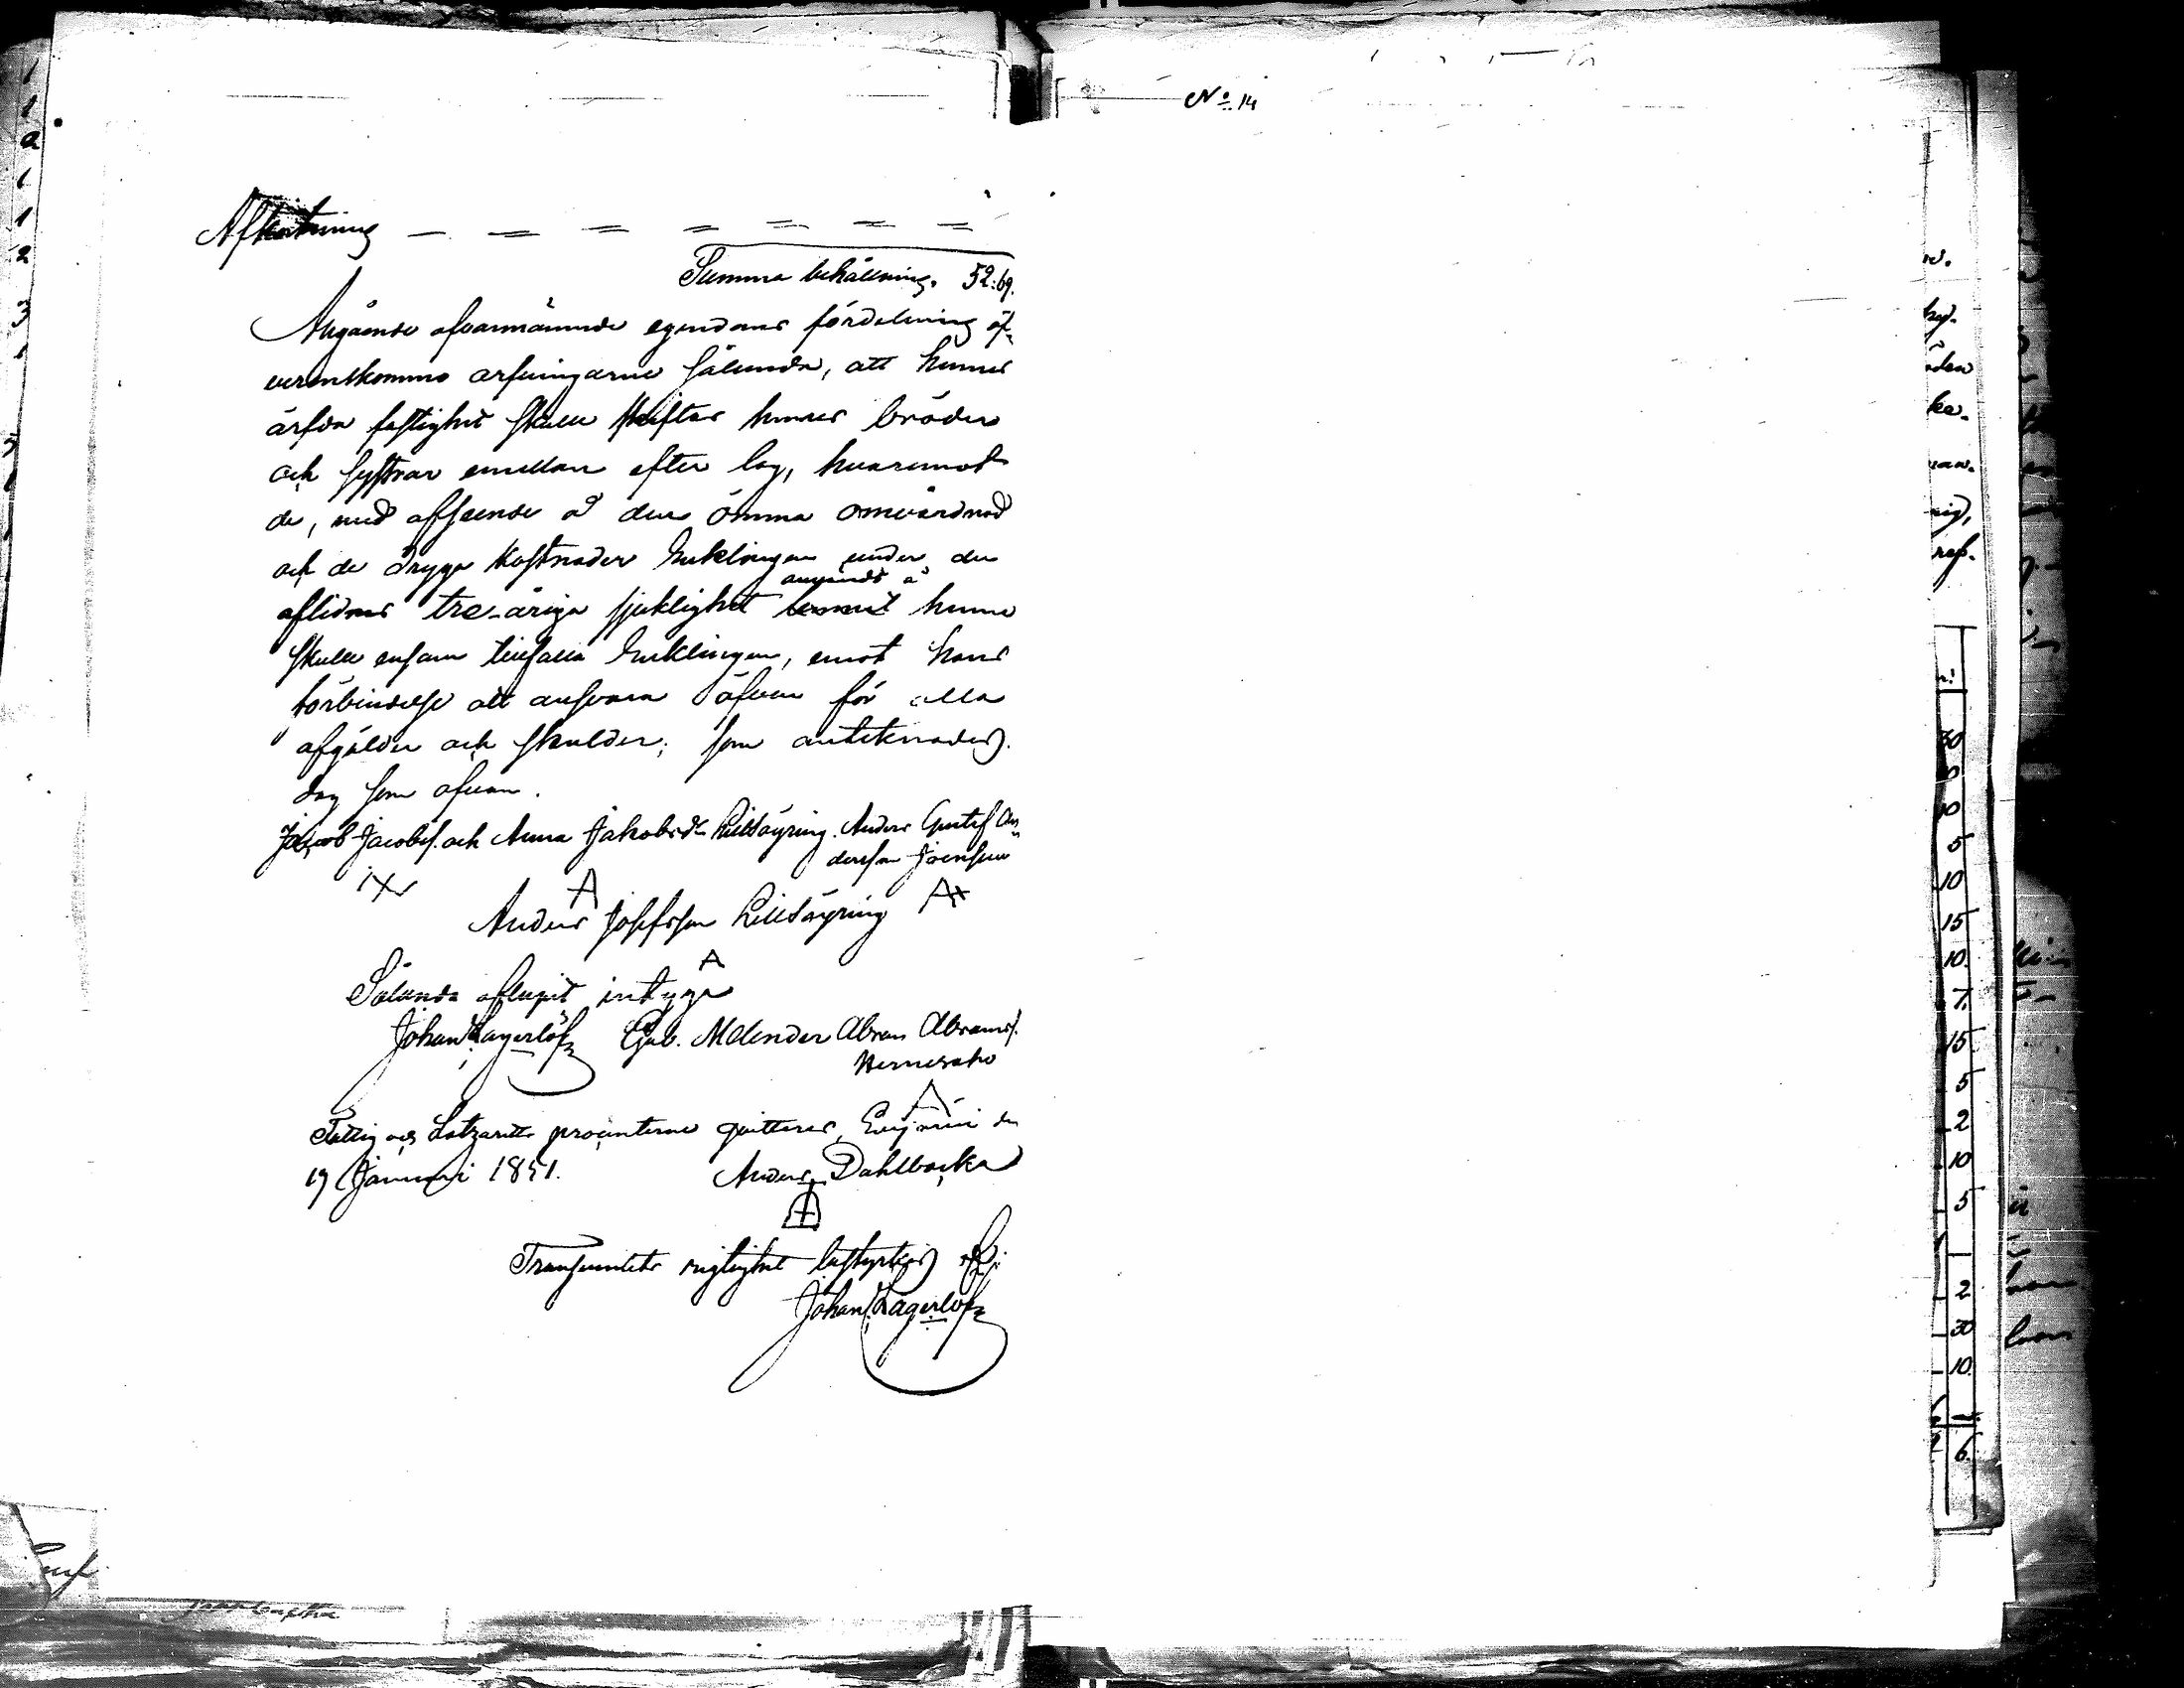 No 14
Afkortning — = = = = = =
Summa behållning. 52:69.
Angående ofvannämnde egendoms fördelning öf-
verenskommo arfvingarne sålunda, att hennes
ärfda fastighet skulle skiftas hennes bröder
och systrar emellan efter lag, hvaremot
de, med afseende å den ömma omvårdnad
och de dryga kostnader Enklingen under den
aflidnes tre-åriga sjuklighet användt å henne
skulle ensam tillfalla Enklingen, emot hans
förbindelse att ansvara äfven för alla
afgälder och skulder; som antecknades.
dag som ofvan.
Jacob Jacobss. och Anna Jakobsdr Lillsäyring. Anders Gustaf An-
dersson Joensuu
A
Anders Josefsson Lillsäyring
A
Sålunda aflupit intyga
Johan Lagerlöf Gab. Melender Abram Abramss.
Hernesaho
A
Fattig och Lazaretts procenterne qvitteras, Evijärvi den
19 Januari 1851. Anders Dahlbacka
Transsumtets rigtighet bestyrker
Johan Lagerlöf